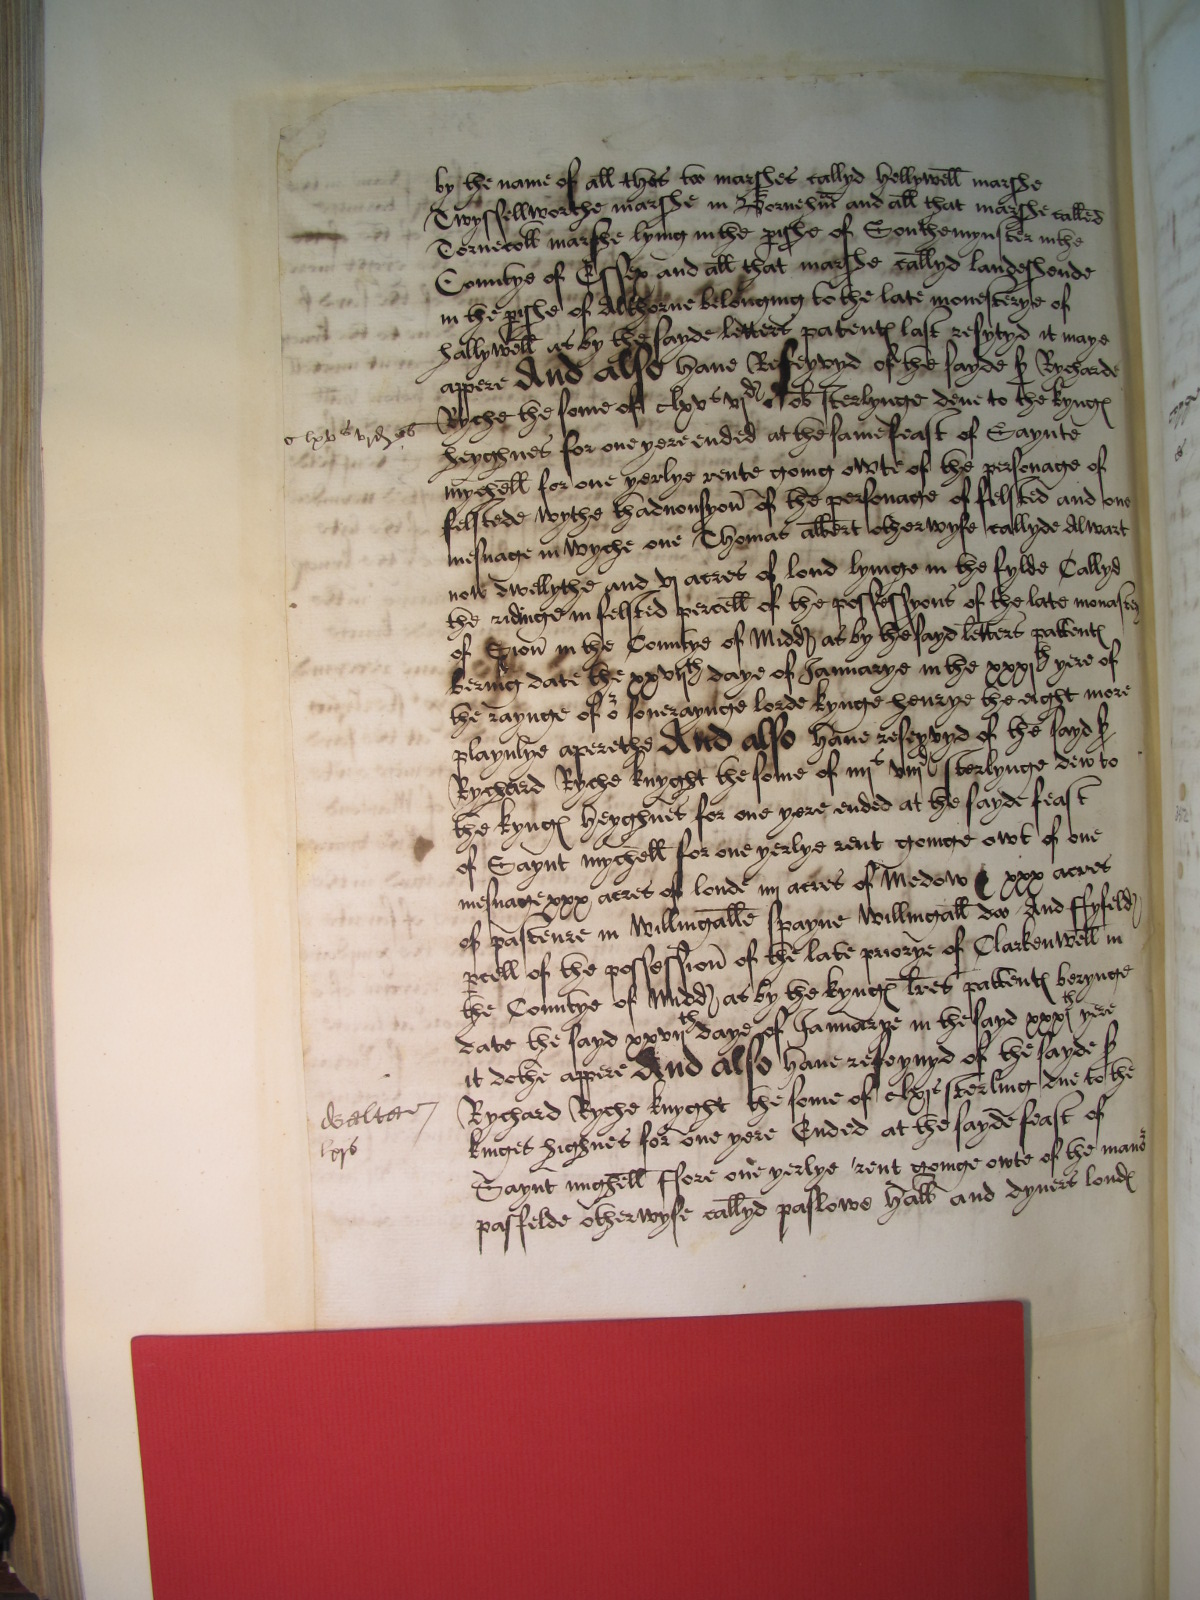 by the name of all thes too marshes callyd hellywell marshe
Twyssellworthe marshe in Bornehm and all that marshe called
Tornecoll marshe lying in the pishe of Southemynster in the
Countye of Essex and all that marshe callyd landeshende
in the pishe of Althorne belonging to the late monesterye of
hallywell as by the sayde letters patent last resytyd it maye
appere And also have Reseyvyd of the sayde s Rycharde
Ryche the some of clxvs vjd ob sterlynge dewe to the kyng
c lxvs vjd ob
heyghnes for one yere ended at the same feast of Saynte
mychell for one yerlye rente going owte of the personage of
felstede wythe thadvousyon of the personage of felsted and one
mesuage in wyche one Thomas albert otherwyse callyde Alwart
now dwellythe and vj acres of lond lyinge in the fylde Callyd
the ridinge in felsted percell of the possessyons of the late monaster
of Sion in the Countye of Midd as by the sayd letters pattent
bering date the xxvijth daye of Januarye in the xxxjth yere of
the raynge of or soveraynge lorde kynge henrye the eight more
playnlye aperethe And also have reseyvyd of the sayd s
Rychard Ryche knyght the some of iiijs viijd sterlynge dew to
the kyng heyghnes for one yere ended at the sayde feast
of Saynt mychell for one yerlye rent goinge owt of one
mesuage xxx acres of londe iiij acres of Medow & xxx acres
of pasteure in Willingalle spayne Willingall doo And ffyfeld
pcell of the possession of the late priorye of Clarkenwell in
the Countye of Midd as by the kyng lres pattent berynge
date the sayd xxvijth daye of Januarye in the sayd xxxjth yere
it dothe appere And also have reseyvyd of the sayde s
Rychard Ryche knyght the some of clxjs sterling due to the
kinges highnes for one yere Ended at the sayde feast of
Saynt mighell ffore one yerlye rent goinge owte of the manor
pasfelde otherwyse callyd paslowe hall and dyvers lond